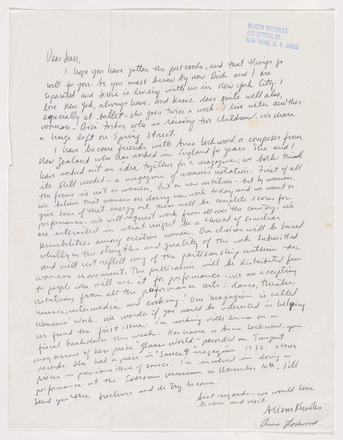 ALISON KNOWLES
122 SPRING ST.
NEW YORK, N. Y. 10012
Dear Jean,
I hope you have gotten the post cards, and that things go
well for you. As you must know by now Dick and I are
separated and Jessie is living with us in New York City. I
love New York, always have, and Jessie does quite well also,
especially at ballet. She goes twice a week. I live with another
woman who is raising her children. We share
a huge loft on Spring Street.
I have become friends with Anna Lockwood a composer from
New Zealand who has worked in England for years. She and I
have worked out an idea together for a magazine, we both think
its still needed - a magazine of women's notation. First of all
the focus is not on women, but on new notation - but by women.
We believe that women are strong in work today and we want to
give some of that energy out. These will be complete scores for
performance. We will request work from all over the country. We
are interested in what might be a thread of similar
sensibilities among creative women. Our choices will be based
wholly on the strength and quality of the work submitted
and will not reflect any of the partisanship within the
women's movement. The publication will be distributed free
to people who will use it for performance. We are accepting
notations from all the performance arts: dance, theatre,
music, intermedia and cooking. Our magazine is called
Womens Work. We wonder if you would be interested in helping
us found the first issue. I'm working with Anna on a
final breakdown this week. Her name is Anna Lockwood, you
may know of her piece "Glass World" recorded on Tangent
records. She had a piece in "Source 9 magazine" 1972. Other
pieces in previous issues of Source. I am involved in doing a
performance at the Everson Museum in November 10th. I'll
send you the brochure and do try to come.
best regards - we would love
to come and visit.
Alison Knowles
Anna Lockwood